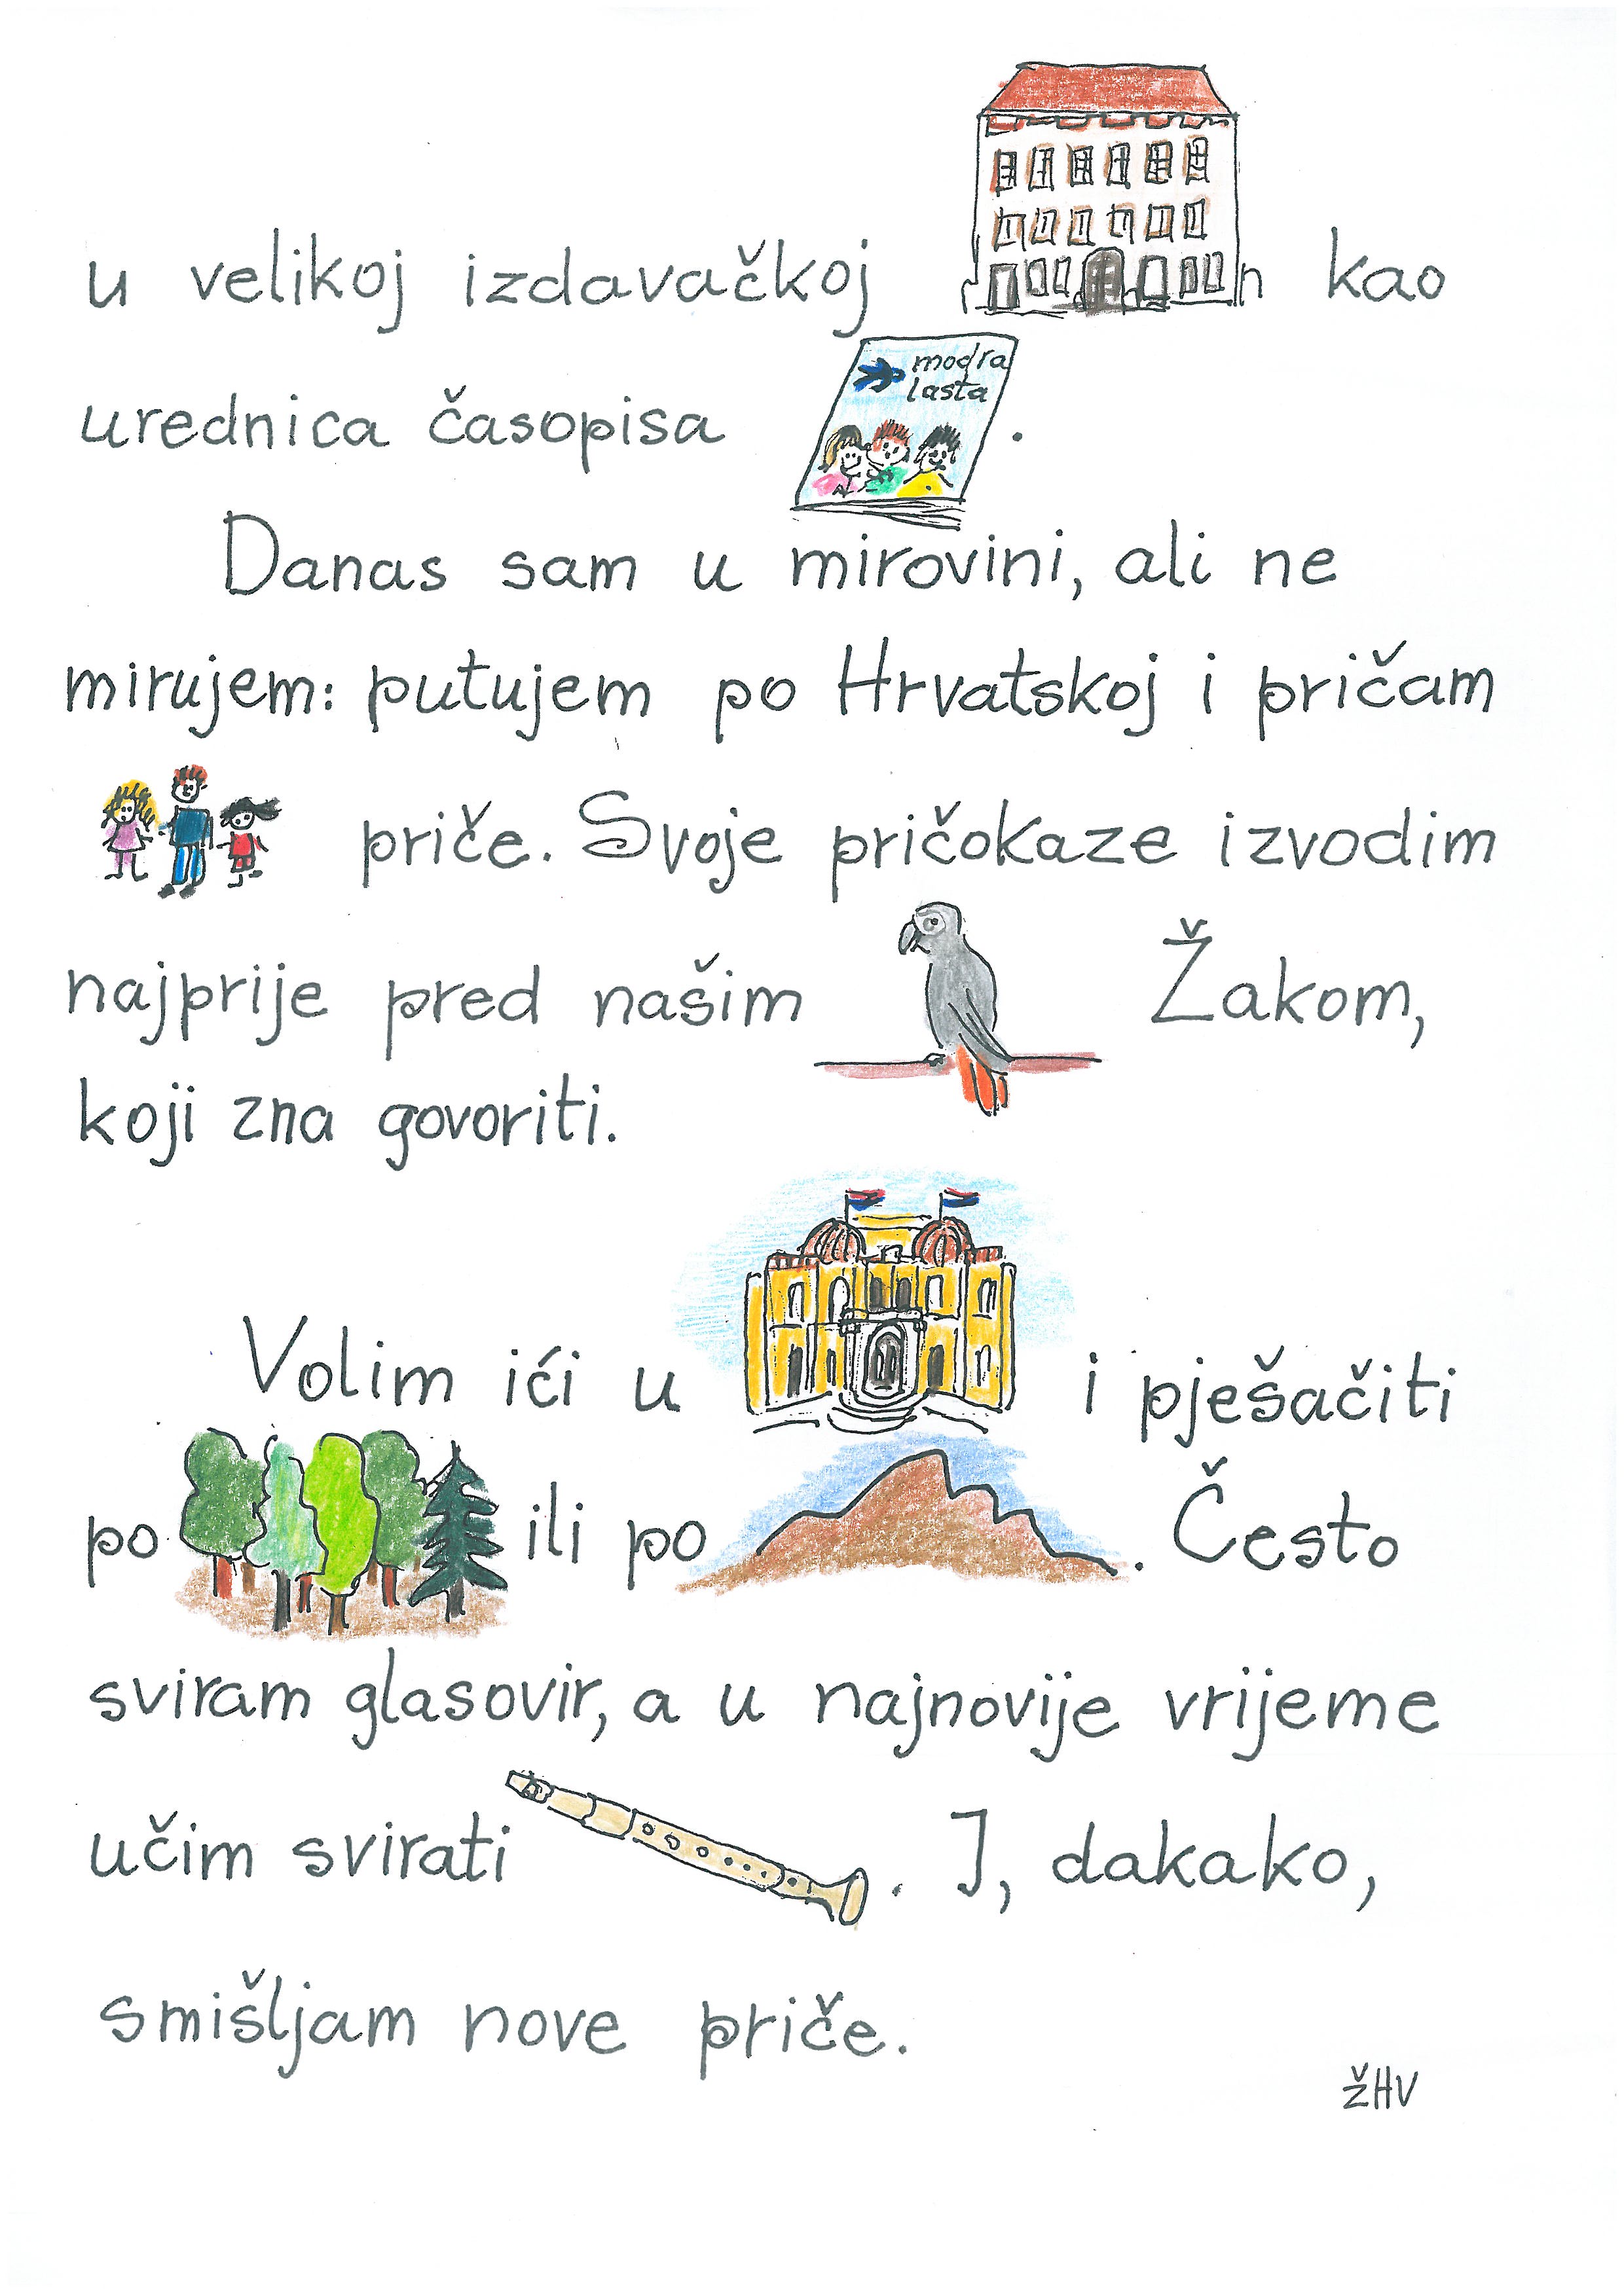 u velikoj izdavačkoj kao
modra
lasta
urednica časopisa .
Danas sam u mirovini, ali ne
mirujem: putujem po Hrvatskoj i pričam
priče. Svoje pričokaze izvodim
najprije pred našim Žakom,
koji zna govoriti.
Volim ići u i pješačiti
po ili po . Često
sviram glasovir, a u najnovije vrijeme
učim svirati . I, dakako,
smišljam nove priče.
ŽHV